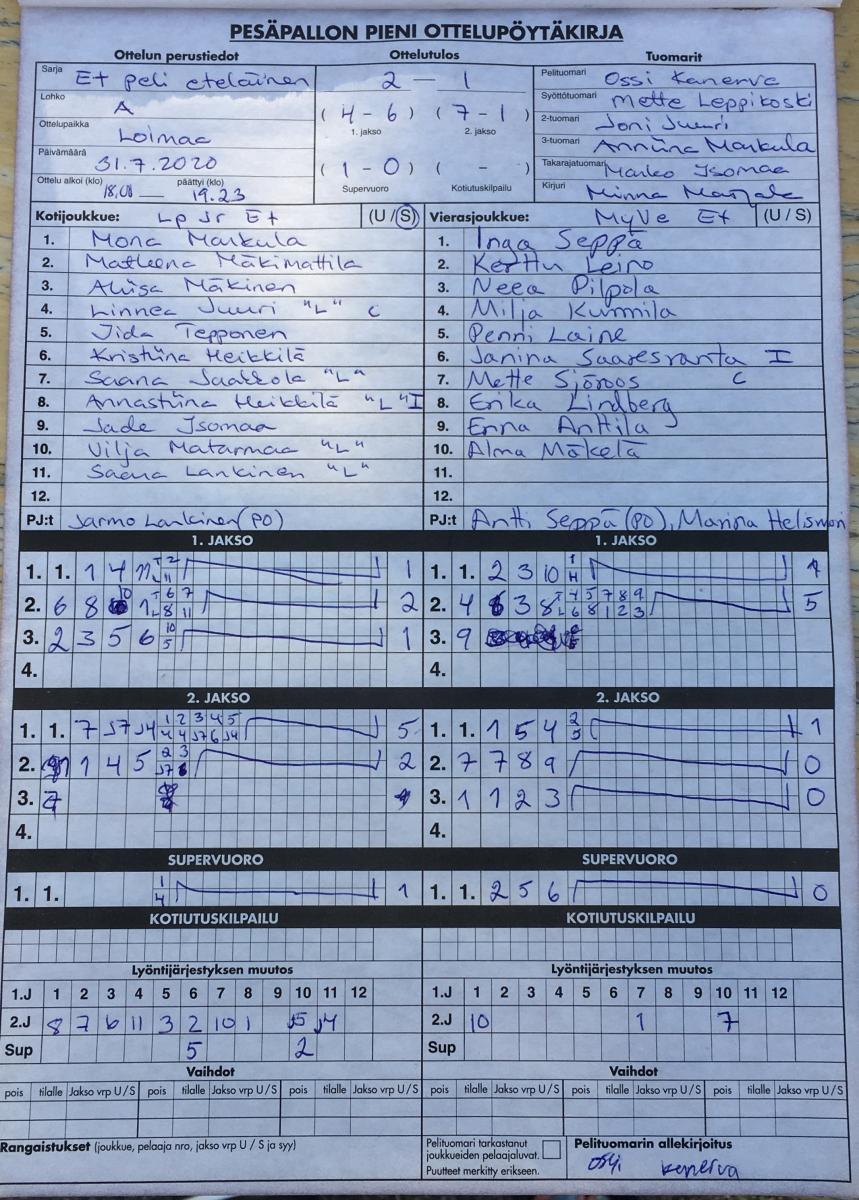 PESÄPALLON PIENI OTTELUPÖYTÄKIRJA
Ottelun perustiedot Ottelutulos Tuomarit
Sarja E+ peli eteläinen
Lohko A
Ottelupaikka Loimaa
Päivämäärä 31.7.2020
Ottelu alkoi (klo) päättyi (klo)
18,00 — 19.23
2 — 1
( 4 - 6 ) ( 7 - 1 )
1. jakso 2. jakso
( 1 - 0 ) ( - )
Supervuoro Kotiutuskilpailu
Pelituomari Ossi Kanerva
Syöttötuomari Mette Leppikoski
2-tuomari Joni Juuri
3-tuomari Anniina Markula
Takarajatuomari Marko Isomaa
Kirjuri Minna
Kotijoukkue: Lp Jr E+ (U / S) Vierasjoukkue: MyVe E+ (U / S)
1. Mona Markula 1. Inga Seppä
2. Matleena Mäkimattila 2. Kerttu Leino
3. Aliisa Mäkinen 3. Neea Pilpola
4. Linnea Juuri "L" C 4. Milja Kummila
5. Iida Tepponen 5. Penni Laine
6. Kristiina Heikkilä 6. Janina Saaresranta I
7. Saana Jaakkola "L" 7. Mette Sjöroos C
8. Annastiina Heikkilä "L" I 8. Erika Lindberg
9. Jade Isomaa 9. Enna Anttila
10. Vilja Matarmaa "L" 10. Alma Mäkelä
11. Saana Lankinen "L" 11.
12. 12.
PJ:t Jarmo Lankinen (PO) PJ:t Antti Seppä (PO), Marina
1. JAKSO 1. JAKSO
1. 1. 1 4 11 1 1. 1. 2 3 10 1
2. 6 8 1 2 2. 4 3 8 5
3. 2 3 5 6 10 5 1 3. 9
4. 4.
2. JAKSO 2. JAKSO
1. 1. 7 J7 J4 1 2 3 4 5 5 1. 1. 1 5 4 2 5 1
2. 1 4 5 2 3 2 2. 7 7 8 9 0
3. 7 3. 1 1 2 3 0
4. 4.
SUPERVUORO SUPERVUORO
1. 1. 1 4 1 1. 1. 2 5 6 0
KOTIUTUSKILPAILU KOTIUTUSKILPAILU
Lyöntijärjestyksen muutos Lyöntijärjestyksen muutos
1.J 1 2 3 4 5 6 7 8 9 10 11 12 1.J 1 2 3 4 5 6 7 8 9 10 11 12
2.J 8 7 6 11 3 2 10 1 J5 J4 2.J 10 1 7
Sup 5 2 Sup
Vaihdot Vaihdot
pois tilalle Jakso vrp U / S pois tilalle Jakso vrp U / S pois tilalle Jakso vrp U / S pois tilalle Jakso vrp U / S pois tilalle Jakso vrp U / S pois tilalle Jakso vrp U / S
Rangaistukset (joukkue, pelaaja nro, jakso vrp U / S ja syy)
Pelituomari tarkastanut
joukkueiden pelaajaluvat.
Puutteet merkitty erikseen.
Pelituomarin allekirjoitus
Kanerva